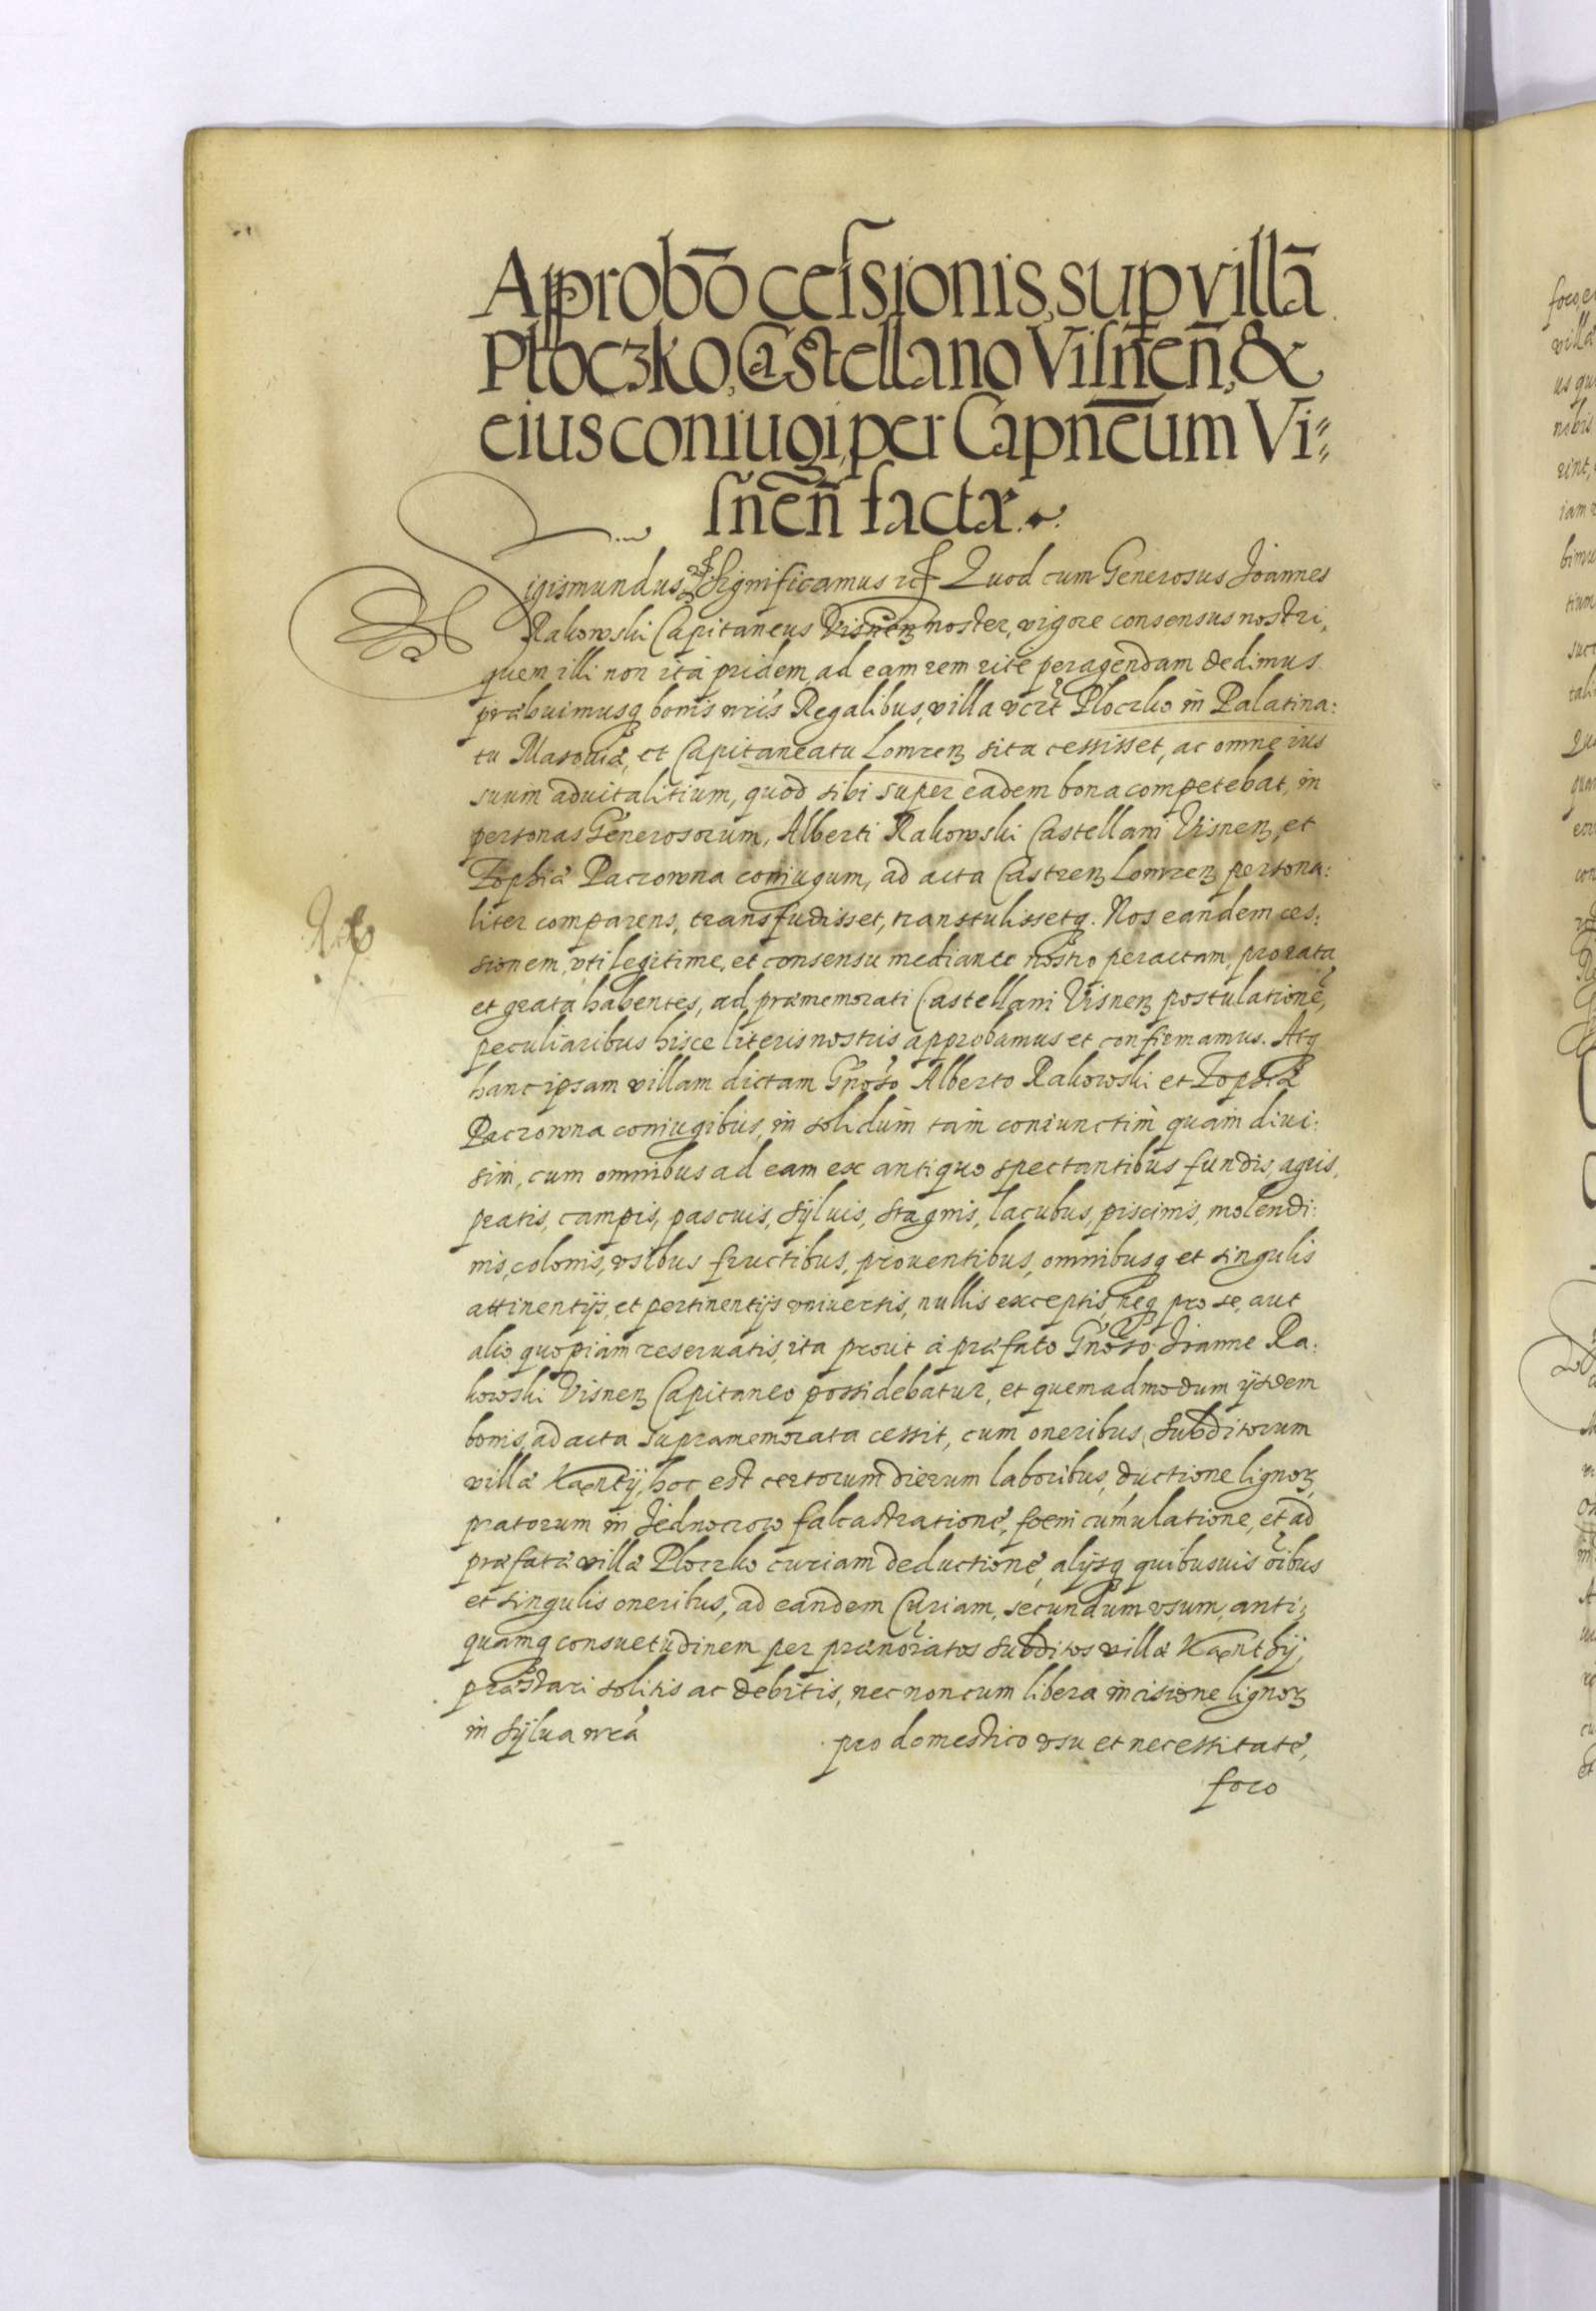 Approbō ceſsionis, sup villā
Płoczko, Castellano Viſnen̄, &
eius coniugi, per Capn̄eum Vi⸗
ſnen̄ factæ.
Sigismundus etc. Significamus etc. Quod cum Generosus Joannes
Rakowski Capitaneus Visnen̄ noster, vigore consensus nostri,
quem illi non ità pridem, ad eam rem ritè peragendam dedimus
præbuimusq, bonis nr̄is Regalibus, villa vcz̄t Ploczko in Palatina:
tu Masouiæ, et Capitaneatu Lomzen̄ sita cessisset, ac omne ius
suum aduitalitium, quod sibi super eadem bona competebat, in
personas Generosorum, Alberti Rakowski Castellani Visnen̄, et
Zophiæ Paczowna coniugum, ad acta Castren̄ Lomzen̄ persona:
liter comparens, transfudisset, transtulissetq. Nos eandem ces:
sionem, vti legitime, et consensu mediante nostro peractam, pro rata
et grata habentes, ad præmemorati Castellani Visnen̄ postulationē,
peculiaribus hisce literis nostris approbamus et confirmamus. Atq
hanc ipsam villam dictam Gn̄oso Alberto Rakowski et Zophiæ
Paczowna coniugibus, in solidum tam coniunctim quam diui:
sim, cum omnibus ad eam ex antiquo spectantibus fundis, agris,
pratis, campis, pascuis, syluis, stagnis, lacubus, piscinis, molendi:
nis, colonis, vsibus fructibus, prouentibus, omnibusq et singulis
attinentijs, et pertinentijs vniuersis, nullis exceptis, neq pro se, aut
alio quopiam reseruatis, ita prout à præfato Gn̄oso Joanne Ra:
kowski Visnen̄ Capitaneo possidebatur, et quemadmodum ijsdem
bonis, ad acta supramemorata cessit, cum oneribus, subditorum
villæ hoc est certorum dierum laboribus, ductione lignor̄,
pratorum in falcastratione, foeni cumulatione, et ad
præfatæ villæ Ploczko curiam deductione, alijsq quibusuis oībus
et singulis oneribus, ad eandem Curiam, secundum vsum, anti:
quamq consuetudinem per prænoīatos subditos villæ
præstari solitis ac debitis, nec non cum libera incisione lignor̄
in sylua nr̄a pro domestico vsu et necessitate,
foco